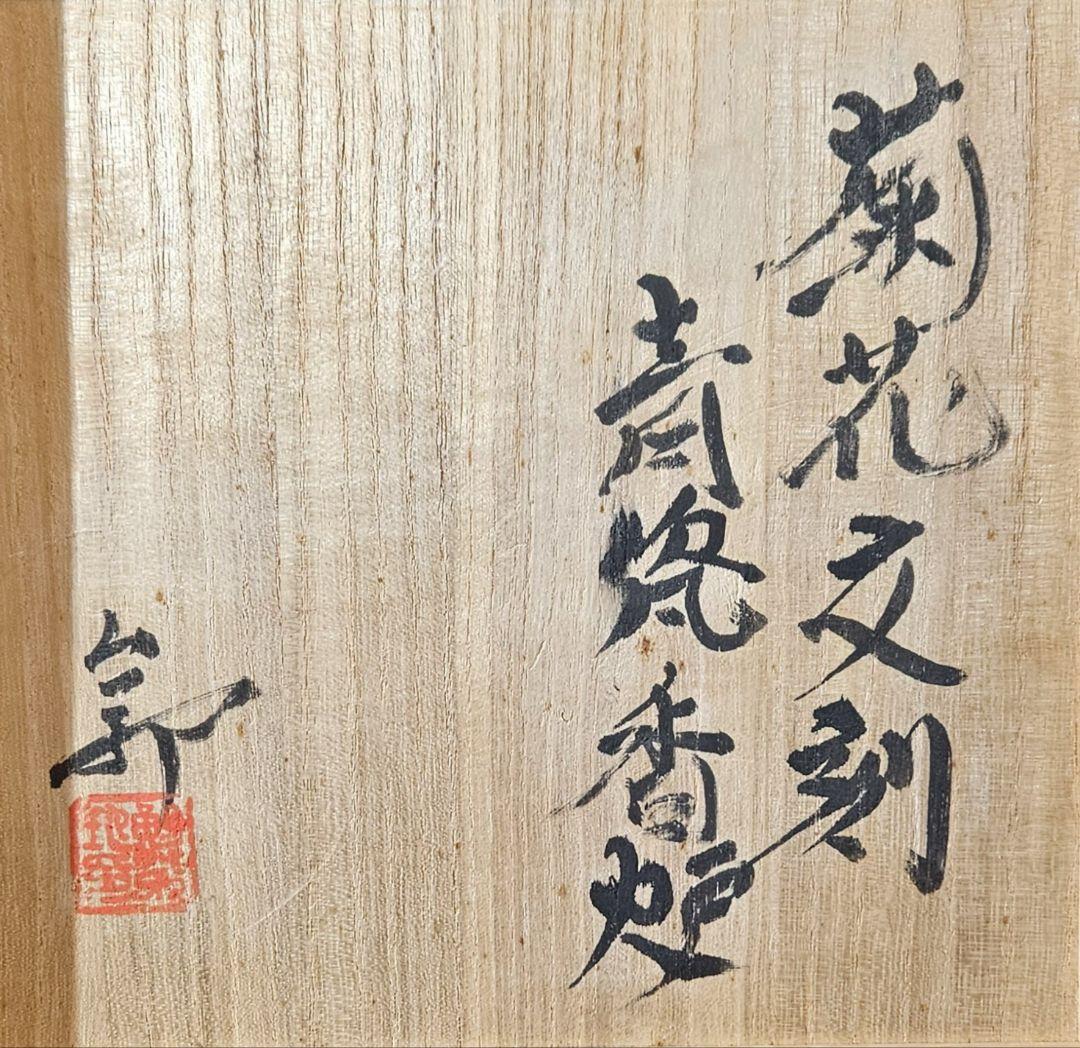 菊花文刻
青瓷香炉